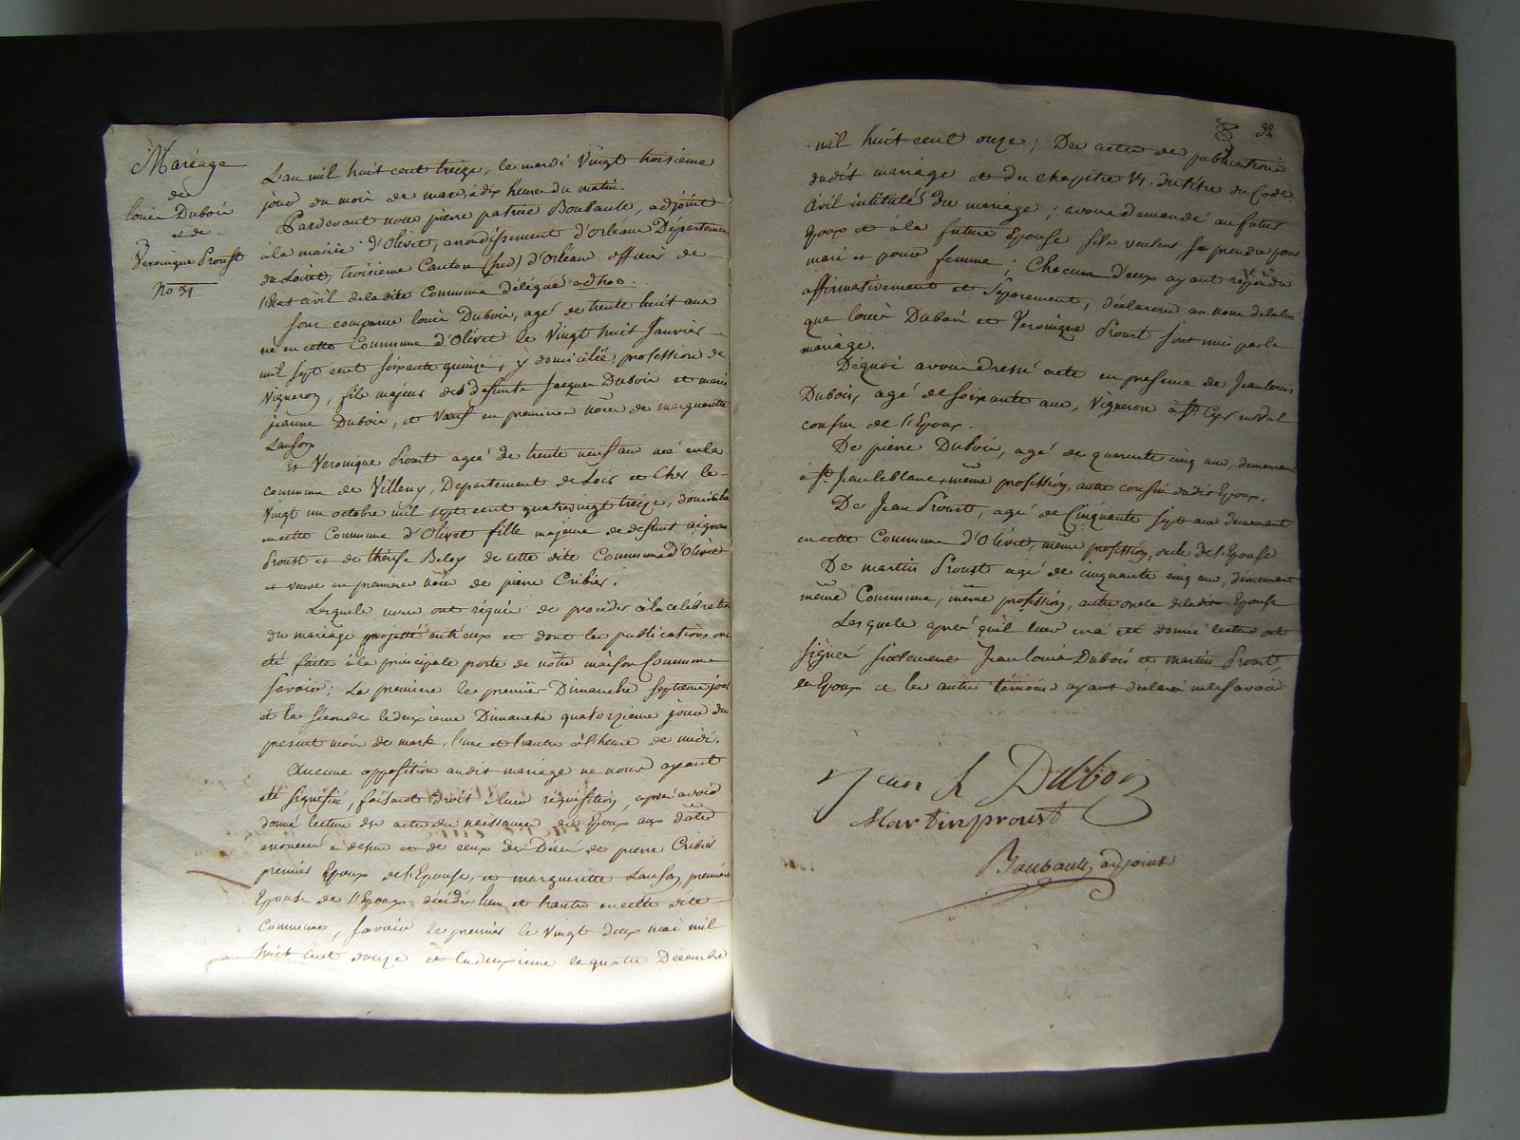 Mariage
de
louis Dubois
et de
Veronique Proust
No 31
L'an mil huit cent treize, le mardi Vingt troisieme
jour du mois de mars, à dix heures du matin.
Pardevant nous pierre patrice Boubault, adjoint
à la mairie d'Olivet, arrondissement d'Orléans Département
du Loiret, troisieme Canton (sud) d'Orléans officier de
l'état civil de la dite Commune délégué ad hoc.
Sont comparus louis Dubois, agé de trente huit ans
né en cette Commune d'Olivet le Vingt huit Janvier
mil sept cent soixante quinze, y domicilié, profession de
Vigneron, fils majeur des défunts Jacques Dubois et marie
jeanne Dubois, et Veuf en premieres nôces de marguerite
Lanson
Et Veronique Proust agée de trente neuf ans née en la
commune de Villeny, Département de Loir et Cher le
Vingt un octobre mil sept cent quatre vingt treize, domiciliée
en cette Commune d'Olivet fille majeure de defunt aignan
Proust et de thérese Beloy de cette dite Commune d'Olivet
et veuve en premieres nôces de pierre Cribier.
Lesquels nous ont réquis de procéder à la célébration
du mariage projetté entr'eux et dont les publications ont
été faites à la principale porte de nôtre maison Commune
Savoir; La premiere le premier Dimanche Septieme jour
et la seconde le deuxieme Dimanche quatorzieme jour du
present mois de mars, l'une et l'autre à l'heure de midi.
Aucune opposition audit mariage ne nous ayant
été signifiée, faisant droit à leur réquisition, après avoir
donné lecture des actes de naissance des Epoux aux dates
enoncées et de ceux de Décès de pierre Cribier
premier Epoux de l'Epouse, et marguerite Lanson, premiere
Epouse de l'Epoux, décédés l'un et l'autre en cette dite
Commune, savoir le premier le Vingt deux mai mil
huit cent douze et la deuxieme le quatre Décembre
32
mil huit cent onze; Des actes de publications
dudit mariage et du chapitre VI. du titre du Code
Civil intitulé du mariage; avons demandé au futur
Epoux et à la future Epouse s'ils veulent se prendre pour
mari et pour femme; Chacun d'eux ayant répondu
affirmativement et séparément, déclarons au nom de la loi
que louis Dubois et Veronique Proust sont unis par le
mariage.
De quoi avons dressé acte en presence de Jean louis
Dubois, agé de soixante ans, Vigneron à St Cyr en Val
cousin de l'Epoux.
De pierre Dubois, agé de quarante cinq ans, demeurant
à St Jean le blanc, même profession, autre cousin dudit Epoux.
De Jean Proust, agé de Cinquante sept ans demeurant
en cette Commune d'Olivet, même profession, oncle de l'Epouse
De martin Proust agé de cinquante cinq ans, demeurant
même Commune, même profession, autre oncle de la dite Epouse
Lesquels après qu'il leur en a été donné lecture ont
signé seulement Jean louis Dubois et martin Proust,
les Epoux et les autres témoins ayant déclaré ne le savoir
Jean L Dubois
Martin proust
Boubault, adjoint